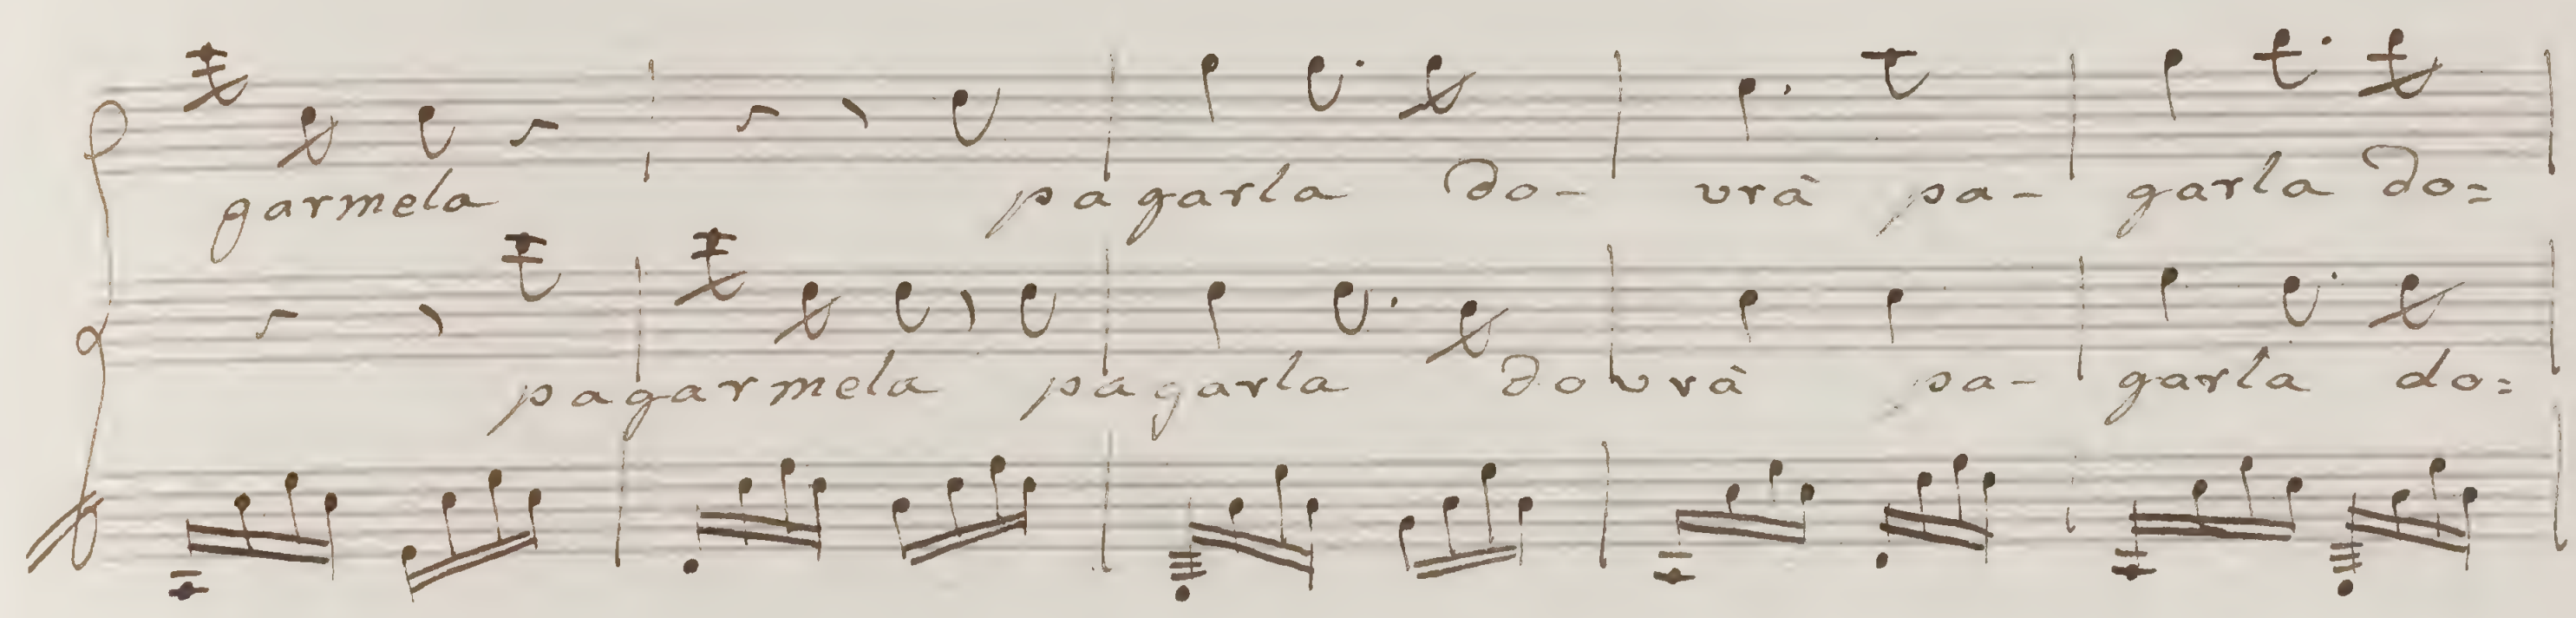 garmela pagarla do- vrà pa- garla do=
pagarmela pagarla dovrà pa- garla do=